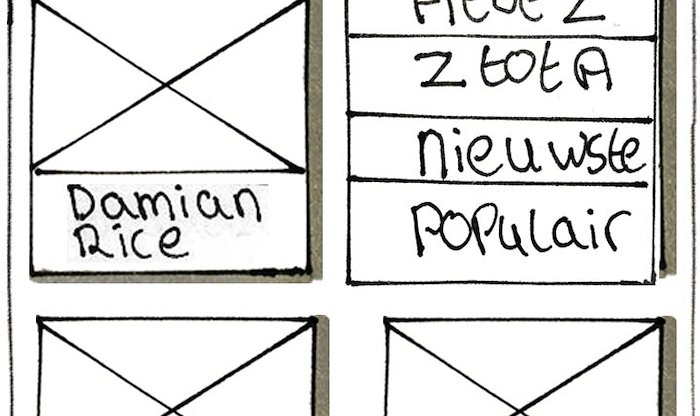 Damian
Rice
Z tot A
nieuwste
populair